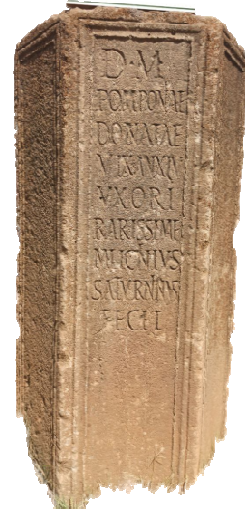 D·M
POMPONIAE
DONATAE
VIX AN XIV
VXORI
RARISSIMAE
MVCIVS
SATVRNINVS
FECIT